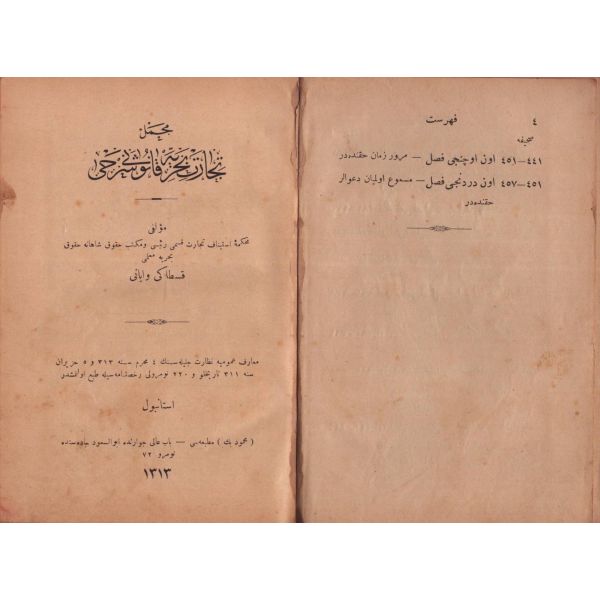 مجمل
تجارت بحریه قانونی شرحی
مؤلفی
محکمۀ استیناف تجارت قسمی رئیسی و مکتب حقوق شاهانه حقوق
بحریه معلمی
قسطاکی وایانی
معارف عمومیه نظارت جلیله‌سنك ٤ محرم سنه ٣١٣ و ٥ حزیران
سنه ٣١١ تاریخلو و ٤٢٠ نومرولی رخصتنامه‌سیله طبع اولنمشدر
استانبول
( محمود بك ) مطبعه‌سی — باب عالی جوارنده ابوالسعود جاده‌سنده
نومرو ٧٢
١٣١٣
٤ فهرست
صحیفه
٤٤١—٤٥١ اون اوچنجی فصل — مرور زمان حقنده‌در
٤٥١—٤٥٧ اون دردنجی فصل — مسموع اولمیان دعوالر
حقنده‌در